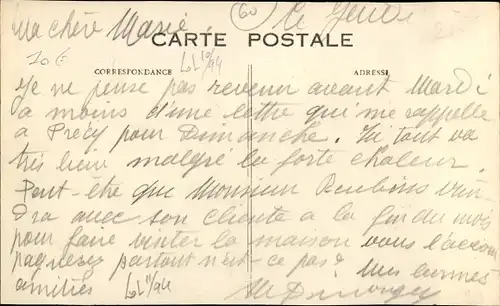 Ma chère Marie
60
Ce Jeudi
CARTE POSTALE
CORRESPONDANCE
ADRESSE
Je ne pense pas revenir avant Mardi
a moins d'une lettre qui me rappelle
a Précy pour Dimanche. Ici tout va
très bien malgré la forte chaleur.
Peut-être que Monsieur vien-
dra avec son cliente a la fin du mois
pour faire visiter la maison vous l'accom
pagnerez partout n'est-ce pas? Mes bonnes
amitiés